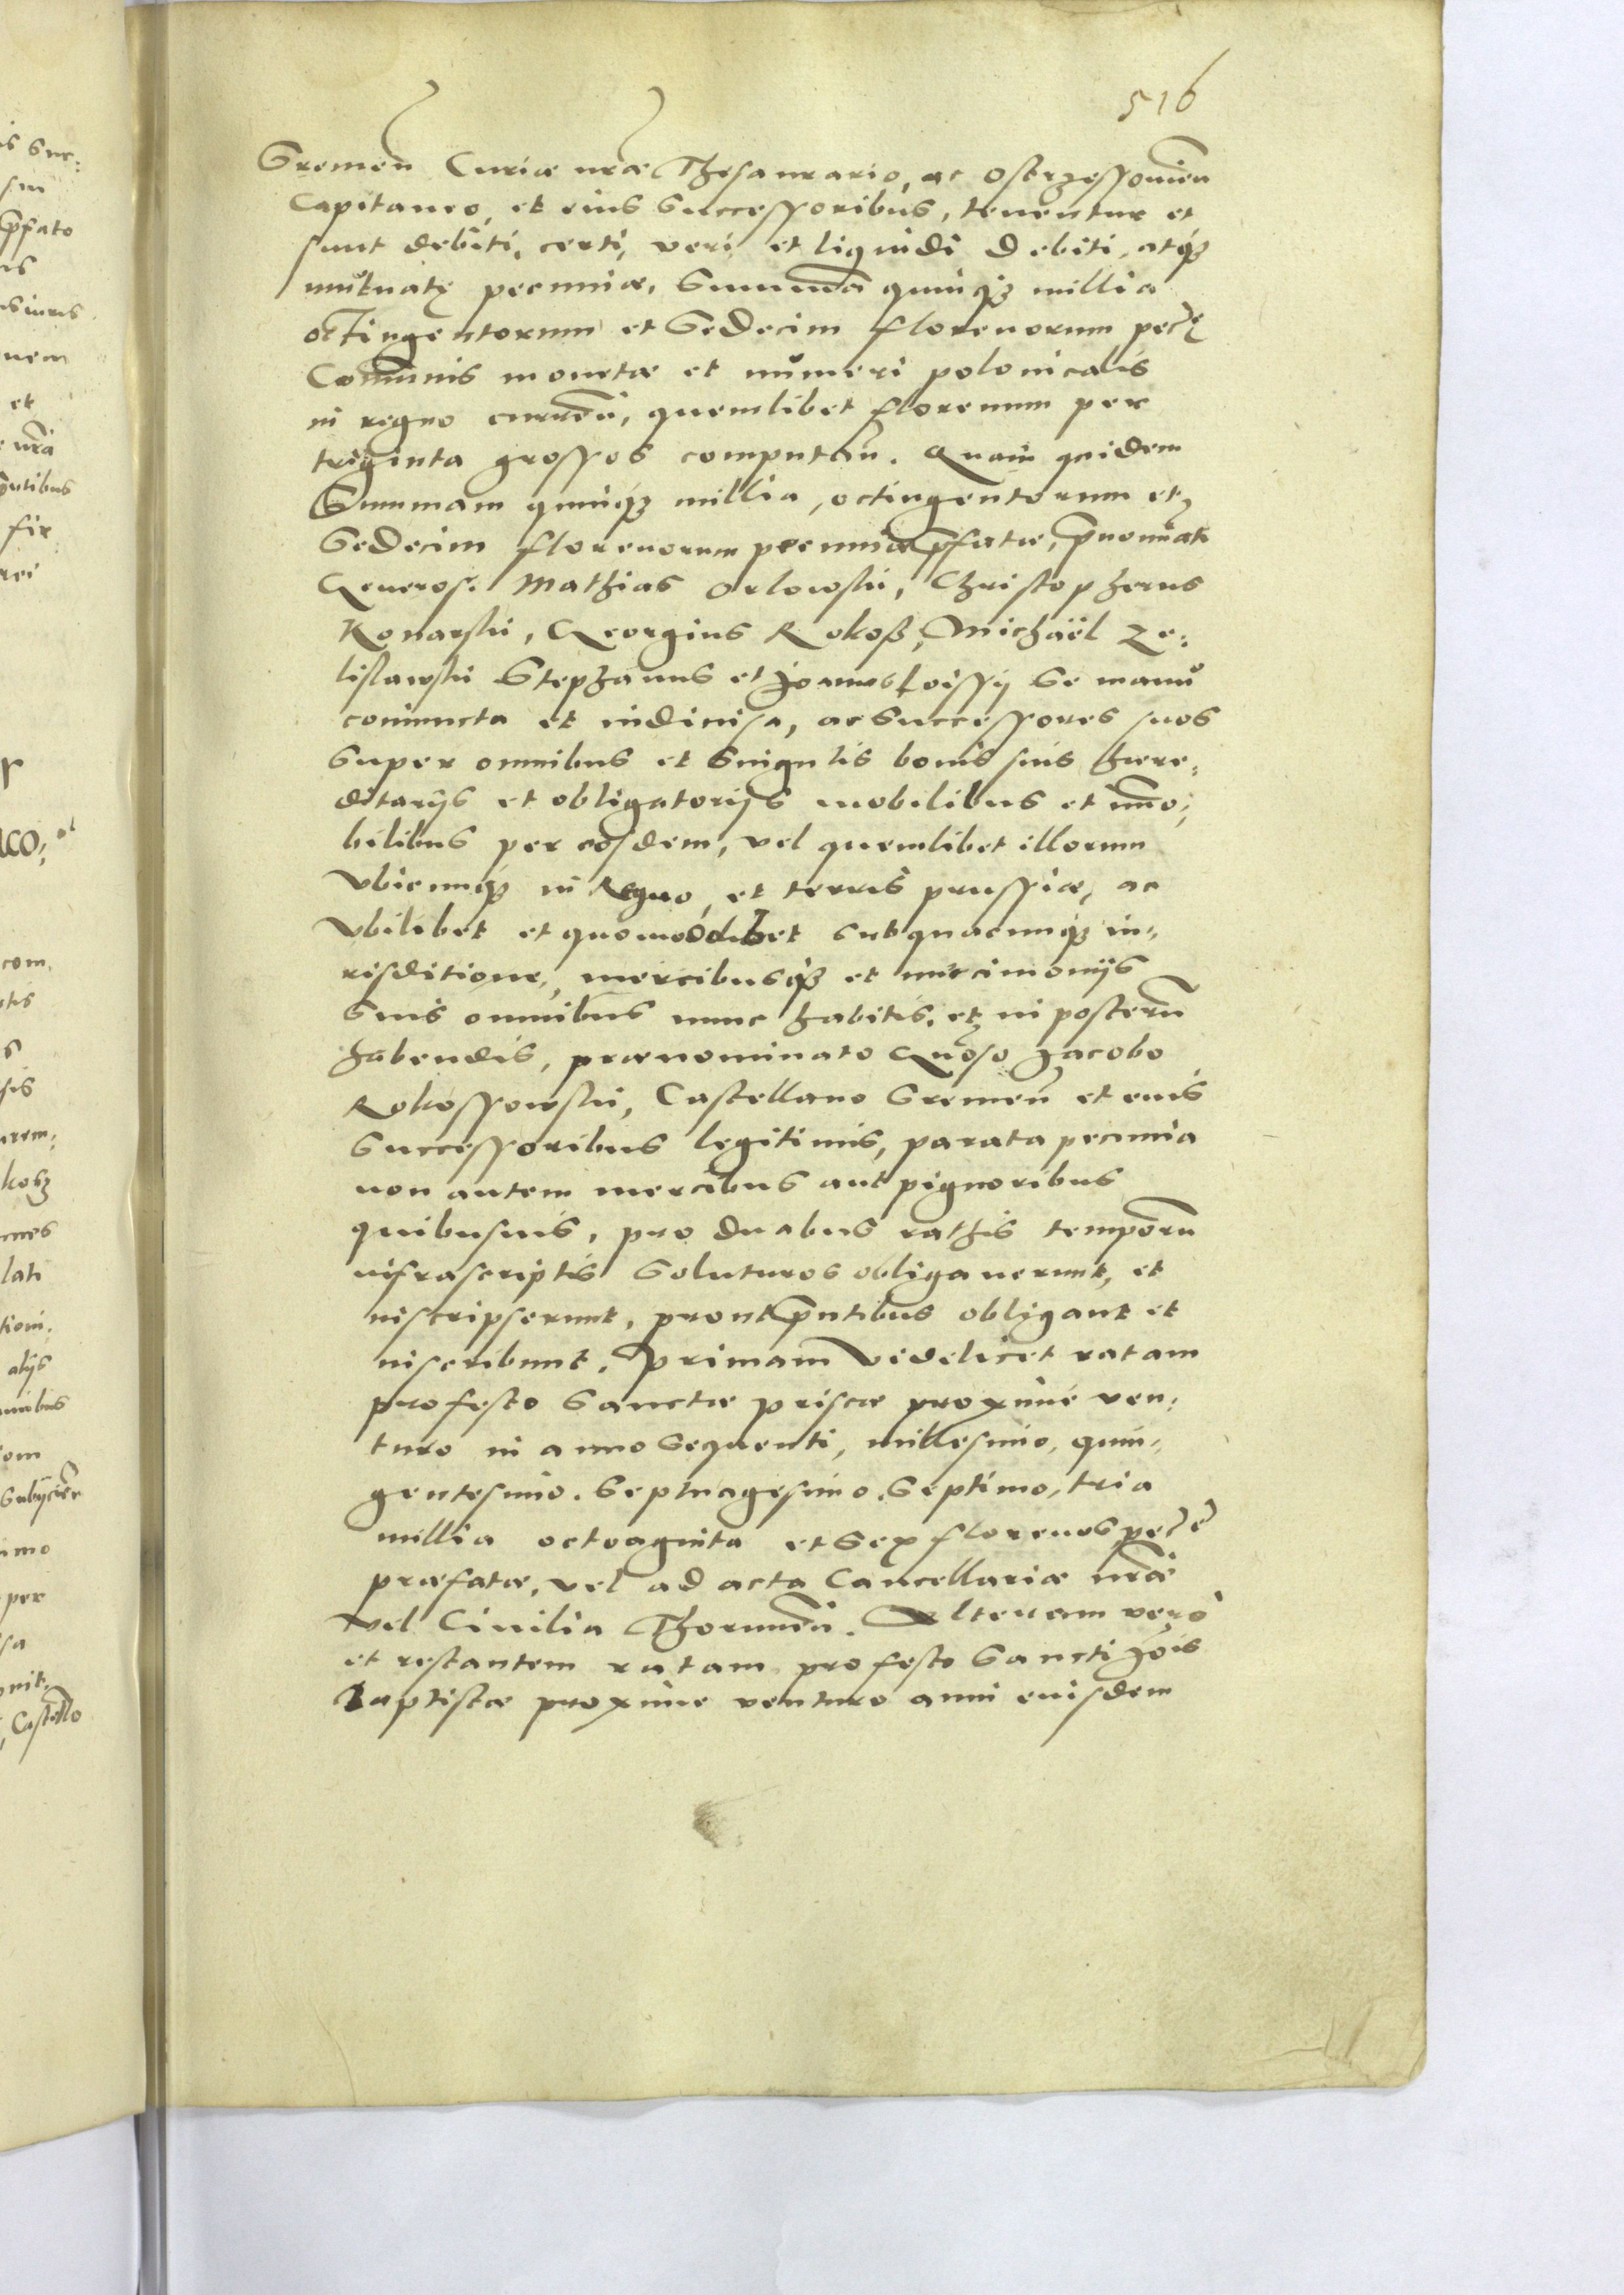 516
Sremeñ Curiæ nr̃æ Thesaurario, ac Ostrzessouieñ
Capitaneo, et eius Successoribus, tenentur et
sunt debiti, certi, veri et liquidi Debiti, atq3
mutuatę pecuniæ, Summã quinq3 millia
octingentorum et Sedecim florenorum pecę
Com̃unis monetæ et numeri polonicalis
in regno curreñ, quemlibet florenum per
triginta grossos computañ. Quam quidem
Summam quinq3 millia, octingentorum et
Sedecim florenorum pecuniæ p̃fatæ, p̃nominati
Generos. Mathias Orlowski, Christopherus
Konarski, Georgius Rokoß, Michaël Ze:
lislawski Stephanus et Joannes Loissÿ Se manu
coniuncta et indiuisa, ac Successores suos
Super omnibus et Singulis bonis suis hære:
ditarijs et obligatorijs mobilibus et im̃o:
bilibus per eosdem, vel quemlibet illorum
Vbicunq3 in Regno, et terris prussiæ, ac
Vbilibet et quomodolibet Sub quacunq3 iu:
risditione, mercibusq3 et mercimonijs
Suis omnibus nunc habitis, et in posterũ
habendis, prænominato Gñoso Jacobo
Rokossowski, Castellano Sremeñ et eius
Successoribus legitimis, parata pecunia
non autem mercibus aut pignoribus
quibusuis, pro duabus rathis temporũ
infrascriptis Soluturos obligauerunt, et
inscripserunt, prout p̃ntibus obligant et
inscribunt. Primam videlicet ratam
pro festo Sanctæ Priscæ proxime ven:
turo in anno Sequenti, millesimo, quin:
gentesimo. Septuagesimo. Septimo, tria
millia octoaginta et Sex florenos pecę
præfatæ, vel ad acta Cancellariæ nr̃æ
vel Ciuilia Thoruneñ. Alteram vero
et restantem ratam pro festo Sancti Jõis
Baptistæ proxime venturo anni eiusdem